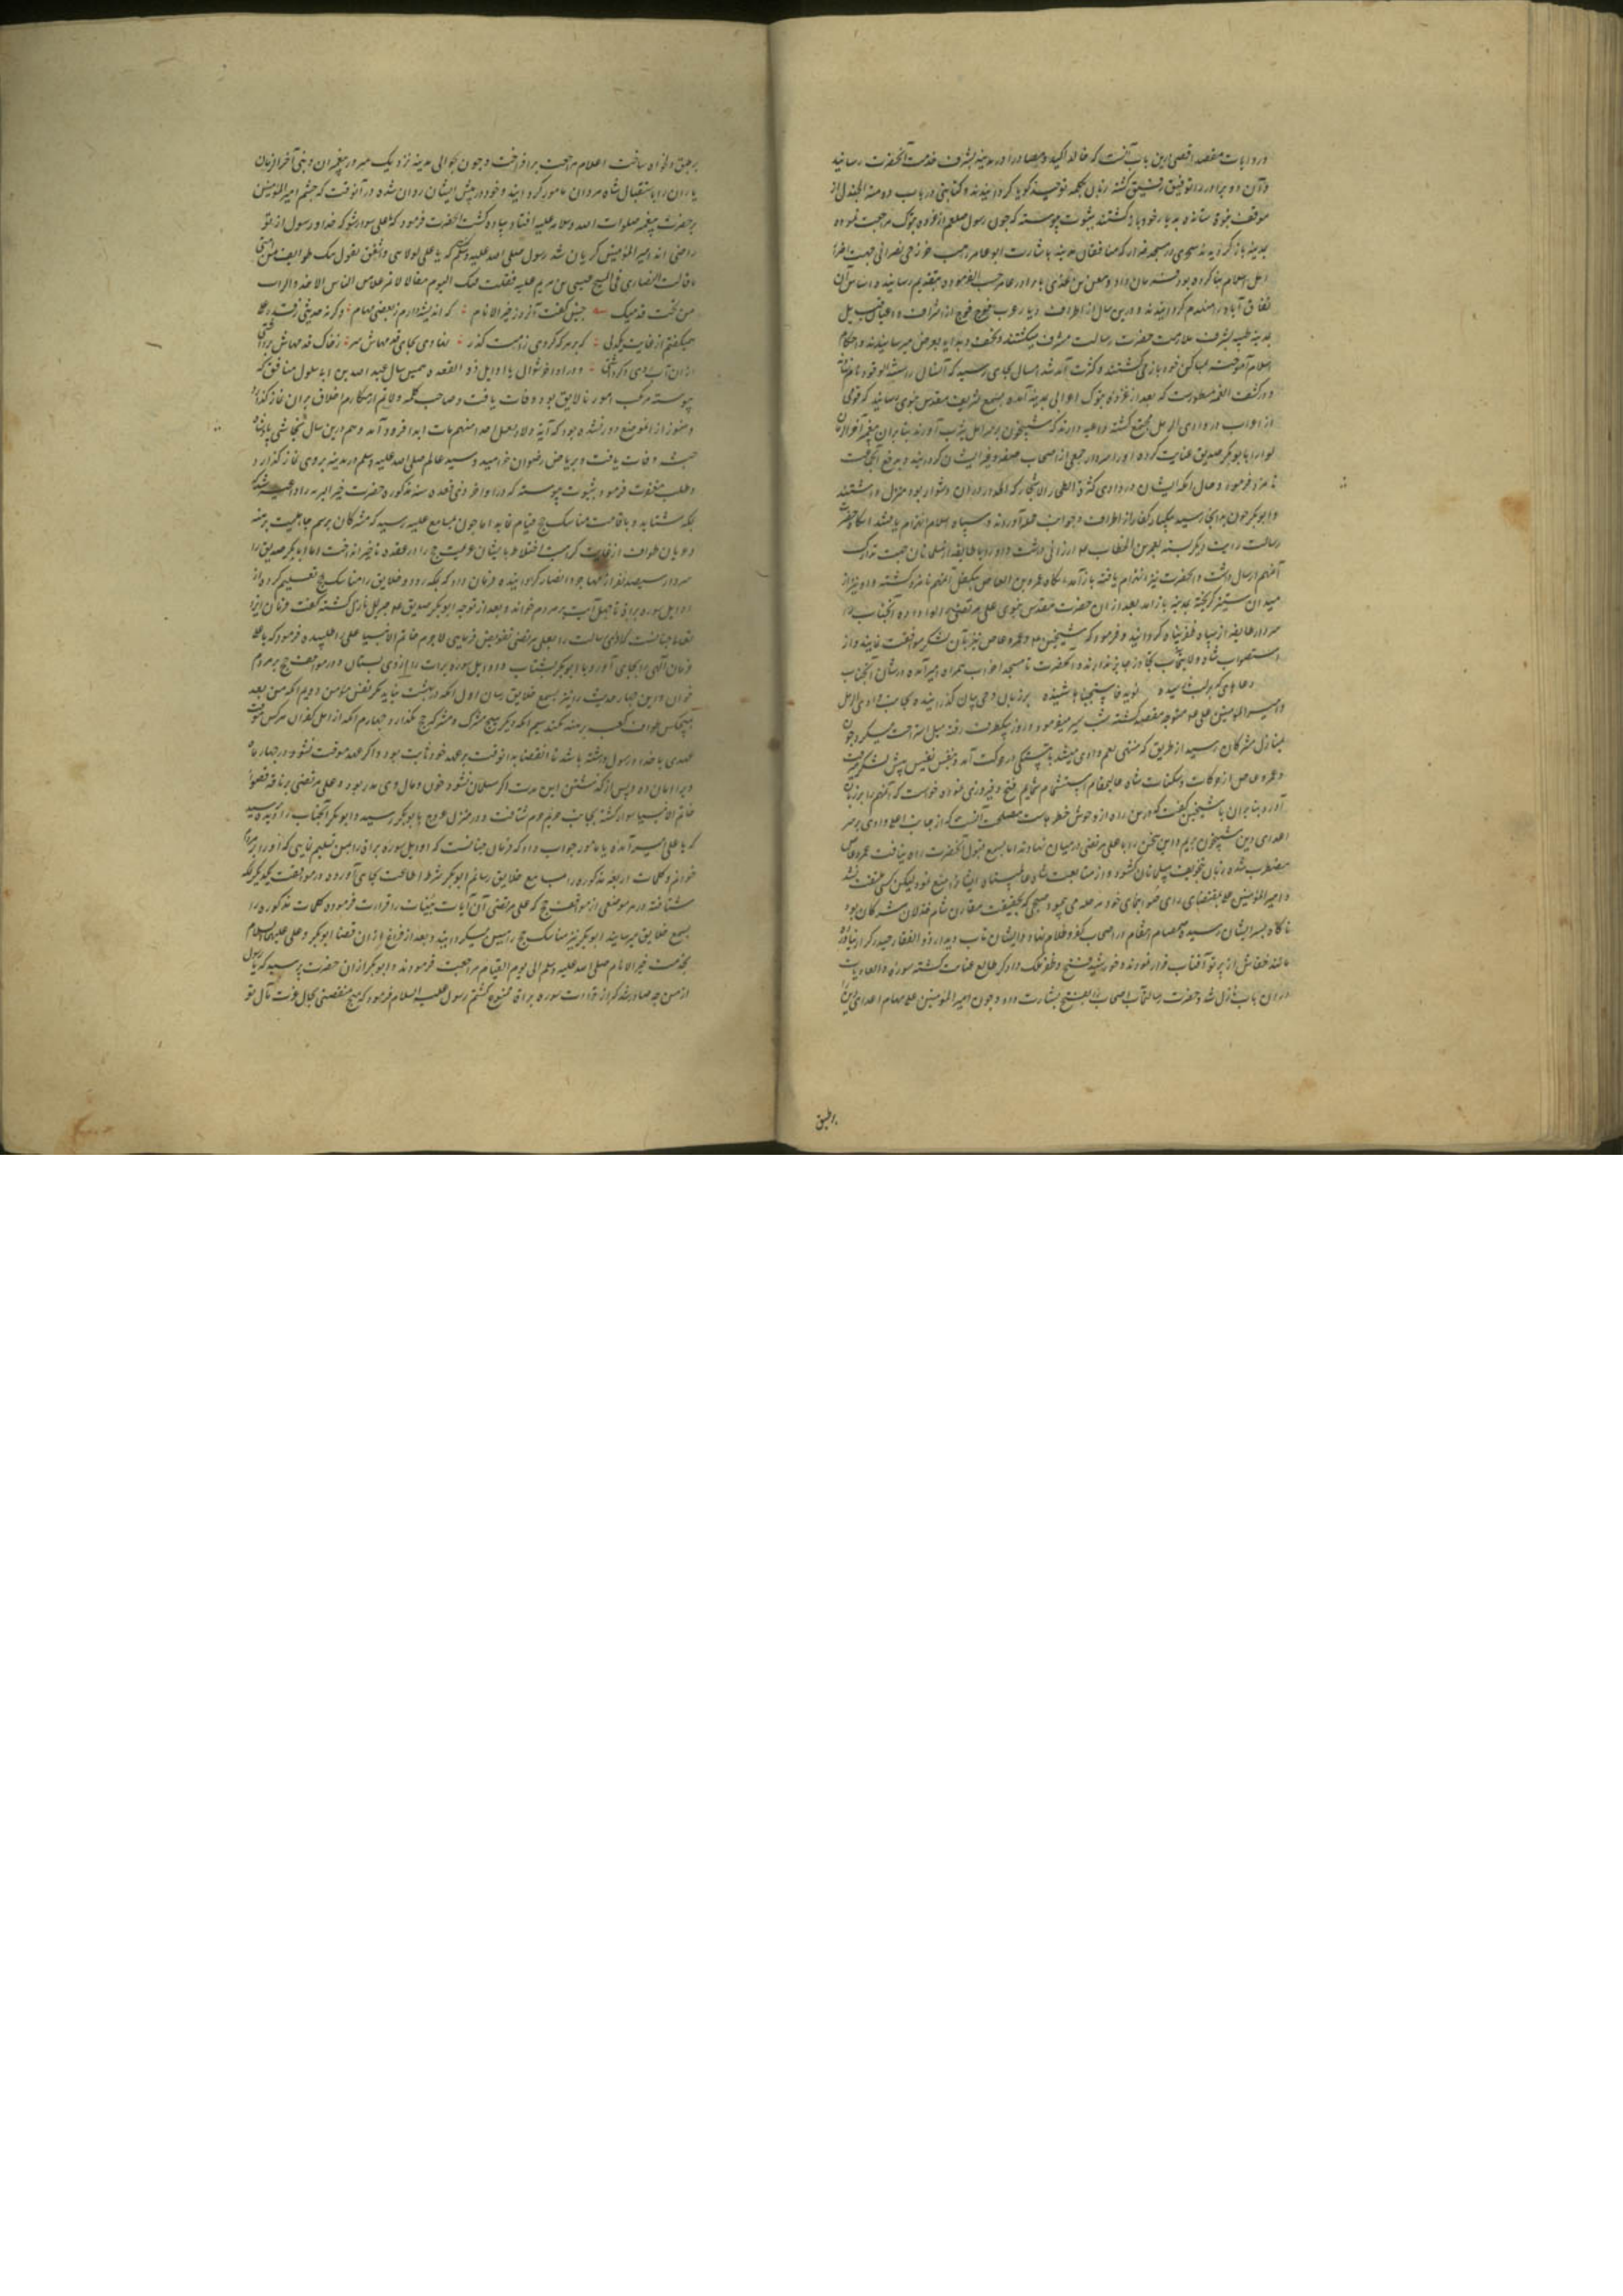 و روایات مقصد اقصی درین باب آنست که خالد اکیدر و مصاد را در مدینه بشرف خدمت آنحضرت رسانید
و آن دو برادر را توفیق رفیق گشته زبان بکلمه توحید گویا گردانیدند و کتابتی در باب دومة الجندل از
موقف نبوة ستانده بدیار خود باز گشتند بثبوت پیوسته که چون رسول صلعم از غزوه تبوک مراجعت نموده
بمدینه باز گردید مسجدی در مسجد ضرار که منافقان مدینه باشارت ابو عامر راهب خزرجی نصرانی جهت اضرار
اهل اسلام بنا کرده بودند فرمان داد و معن بن عدی با برادر عاصم حسب الفرموده بتقدیم رسانیده اساس آن
نفاق آباد را منهدم گردانیدند و درین سال از اطراف دیار عرب فوج فوج از اشراف و اعیان قبایل
بمدینه طیبه بشرف ملازمت حضرت رسالت مشرف میگشتند و تحف و هدایا بعرض میرسانیدند و احکام
اسلام آموخته بمساکن خود باز می گشتند و کثرت آمد شد بجای رسید که آنسال را سنة الوفود نام نهادند
و در کشف الغمه مسطورست که بعد از غزوه تبوک اعرابی بمدینه آمده بسمع شریف مقدس نبوی رسانید که قومی
از اعراب در وادی الرمل مجتمع گشته داعیه دارند که شبیخون بر سر اهل یثرب آورند بنا بران پیغمبر آخرالزمان
لوا را بابوبکر صدیق عنایت کرده او را سردار جمعی از اصحاب صفه و غیر ایشان گردانید و بدفع آنجماعت
نامزد فرمود و حال آنکه ایشان در وادی کثیرة الحجارة و الاشجار که انحدار در ان دشوار بود منزل داشتند
و ابوبکر چون بدانجا رسید بیکبار کفار از اطراف و جوانب حمله آوردند و سپاه اسلام انهزام یافتند آنگاه حضرت
رسالت رایت دیگر بسته بعمر بن الخطاب رضه ارزانی داشت و او را با طایفه از مسلمانان جهت تدارک
آن مهم ارسال داشت و آنحضرت نیز انهزام یافته باز آمد آنگاه عمرو بن العاص متکفل آن مهم نامزد گشته و او نیز از
میدان ستیز گریخته بمدینه باز آمد بعد از ان حضرت مقدس نبوی علی مرتضی را لوا داده آنجناب را
سردار طایفه از سپاه ظفر پناه گردانید و فرمود که شیخین و عمرو عاص نیز بآن لشکر موافقت نمایند و از
استصواب شاه ولایتمآب تجاوز جایز ندارند و آنحضرت تا مسجد احزاب همراه امیر آمده در شأن آنجناب
دعا های که بر لب رسیده نوید فاستجبنا شنیده بر زبان وحی بیان گذرانیده بجانب وادی الرمل
و امیر المؤمنین علی متوجه مقصد گشته شب سیر میفرمود و روز بیکطرف رفته میل استراحت میکرد و چون
بمنازل مشرکان رسید از طریق که منتهی بفم وادی میشد بآهستگی در حرکت آمد و بنفس نفیس پیش لشکر میرفت
و عمرو عاص از حرکات و سکنات شاه عالیمقام استشمام شمایم فتح و فیروزی نموده خواست که آن مهم را برهم زند
آورد بنا بران با شیخین گفت که درین راه از وحوش خطر هاست مصلحت آنست که از جانب اعلا وادی بر سر
اعدای دین شبیخون بریم و این سخن را با علی مرتضی در میان نهادند اما بسمع قبول آنحضرت راه نیافت عمرو عاص
مضطرب شده زبان بتخویف مسلمانان گشود و از متابعت شاه ولایت پناه ایشان را منع نمود لیکن کسی ملتفت نشد
و امیر المؤمنین علی بمقتضای رای صواب نمای خود مرحله می پیمود و صبحی که بحقیقت مقارن شام خذلان مشرکان بود
ناگاه بسر ایشان رسید و صمصام انتقام در اصحاب کفر و ظلام نهاد و ایشان تاب دیدار ذوالفقار حیدر کرار نیاورده
مانند خفاش از پرتو آفتاب فرار نمودند و خورشید فتح و ظفر از فلک دادگر طالع عنایت گشته سورة و العادیات
در ان باب نازل شد و حضرت رسالتمآب اصحاب را بفتح بشارت داد و چون امیر المؤمنین علی مهام اعدای دین را
بر طبق
بر طبق دلخواه ساخت اعلام مراجعت برافراخت و چون بحوالی مدینه نزدیک رسید سرور پیغمبران و نبی آخر الزمان
یاران را باستقبال شاه مردان مامور گردانید و خود در پیش ایشان روان شده در آنوقت که چشم امیر المؤمنین
بر حضرت پیغمبر صلوات الله و سلامه علیه افتاد پیاده گشت آنحضرت فرمود که یا علی سوار شو که خدا و رسول از تو
راضی اند امیر المؤمنین گریان شد رسول صلی الله علیه و سلم گفت که یا علی لولا انی اشفق ان تقول فیک طوایف من امتی
ما قالت النصاری فی المسیح عیسی بن مریم علیه السلام لقلت فیک الیوم مقالا لا تمر بملاء من الناس الا اخذوا التراب
من تحت قدمیک چنین گفت آنروز خیر الانام که اندیشه دارم ز بعضی مهام وگرنه حدیثی ز قدر علی
همیگفتم از غایت یکدلی که بر هر که کردی ز امت گذر نهادی بجای قدمهاش سر ز خاک قدمهاش برداشتی
و در اواخر شوال یا اوایل ذو القعده همین سال عبد الله بن ابی سلول منافق که
پیوسته مرتکب امور نالایق بود وفات یافت و صاحب کلمه ولاتم از مکارم اخلاق بران نماز گذارد
و هنوز از آن موضع دور نشده بود که آیه ولا تصل علی احد منهم مات ابدا فرود آمد و هم درین سال نجاشی پادشاه
حبشه وفات یافت و بریاض رضوان خرامید و سید عالم صلی الله علیه و سلم در مدینه بر وی نماز گذارد و
طلب مغفرت فرمود و بثبوت پیوسته که در اواخر ذی قعده سنه مذکوره حضرت خیر البریه را داعیه شد که
بمکه شتابد و باقامت مناسک حج قیام نماید اما چون بمسامع علیه رسید که مشرکان برسم جاهلیت برهنه
و عریان طواف از غایت کراهیت اختلاط با ایشان عزیمت حج را در عقده تاخیر انداخت اما ابابکر صدیق را
سردار سیصد نفر از مهاجر و انصار گردانیده فرمان داد که بمکه رود و خلایق را مناسک حج تعلیم کرده از
اوایل سوره براة تا چهل آیت بر مردم خواند و بعد از توجه ابوبکر صدیق رضه جبریل نازل گشته گفت فرمان ایزد
تعالی چنانست که ادای رسالت را بعلی مرتضی تفویض فرمایی لا جرم خاتم الانبیا علی را طلبیده فرمود که یا علی
فرمان الهی را بجای آور و با ابوبکر بشتاب و اوایل سوره برات را از وی بستان و در موافف حج بر مردم
خوان و این چهار حدیث را نیز بسمع خلایق رسان اول آنکه در بهشت نیاید مگر نفس مؤمن دویم آنکه من بعد
هیچکس طواف کعبه برهنه نکند سیم آنکه دیگر هیچ مشرک و مشرکه حج نگذارد چهارم آنکه از اهل کفران هر کس که بوقت
عهدی با خدا و رسول داشته باشد تا انقضا بدانوقت بر عهد خود ثابت بود و اگر عهد موقت نشود در چهار ماه
ویرا امان ده و پس از گذشتن این مدت اگر مسلمان نشود خون و مال وی هدر بود و علی مرتضی بر ناقه غضبای
خاتم الانبیا سوار گشته بجانب حرم محترم شتافت و در منزل عرج بابوبکر رسید و ابوبکر آنجناب را دیده پرسید
که یا علی امیر آمده یا مامور جواب داد که فرمان چنانست که اوایل سوره براة را بمن تسلیم نمایی که آنرا بر مردم
خوانم و کلمات اربعه مذکوره را بمسامع خلایق رسانم ابوبکر شرط اطاعت بجای آورده در موافقت یکدیگر بمکه
شتافته در هر موضعی از مواقف حج که علی مرتضی آن آیات بینات را قرائت فرموده کلمات مذکوره را
بسمع خلایق میرسانید ابوبکر نیز مناسک حج را مبین میگردانید و بعد از فراغ از ان قضایا ابوبکر و علی علیهما السلام
بخدمت خیر الانام صلی الله علیه و سلم الی یوم القیام مراجعت فرمودند و ابوبکر از ان حضرت پرسید که یا رسول
از من چه صادر شد که از قراءت سوره براة ممنوع گشتم رسول علیه السلام فرمود که هیچ منقصتی بکمال عزت مآل تو